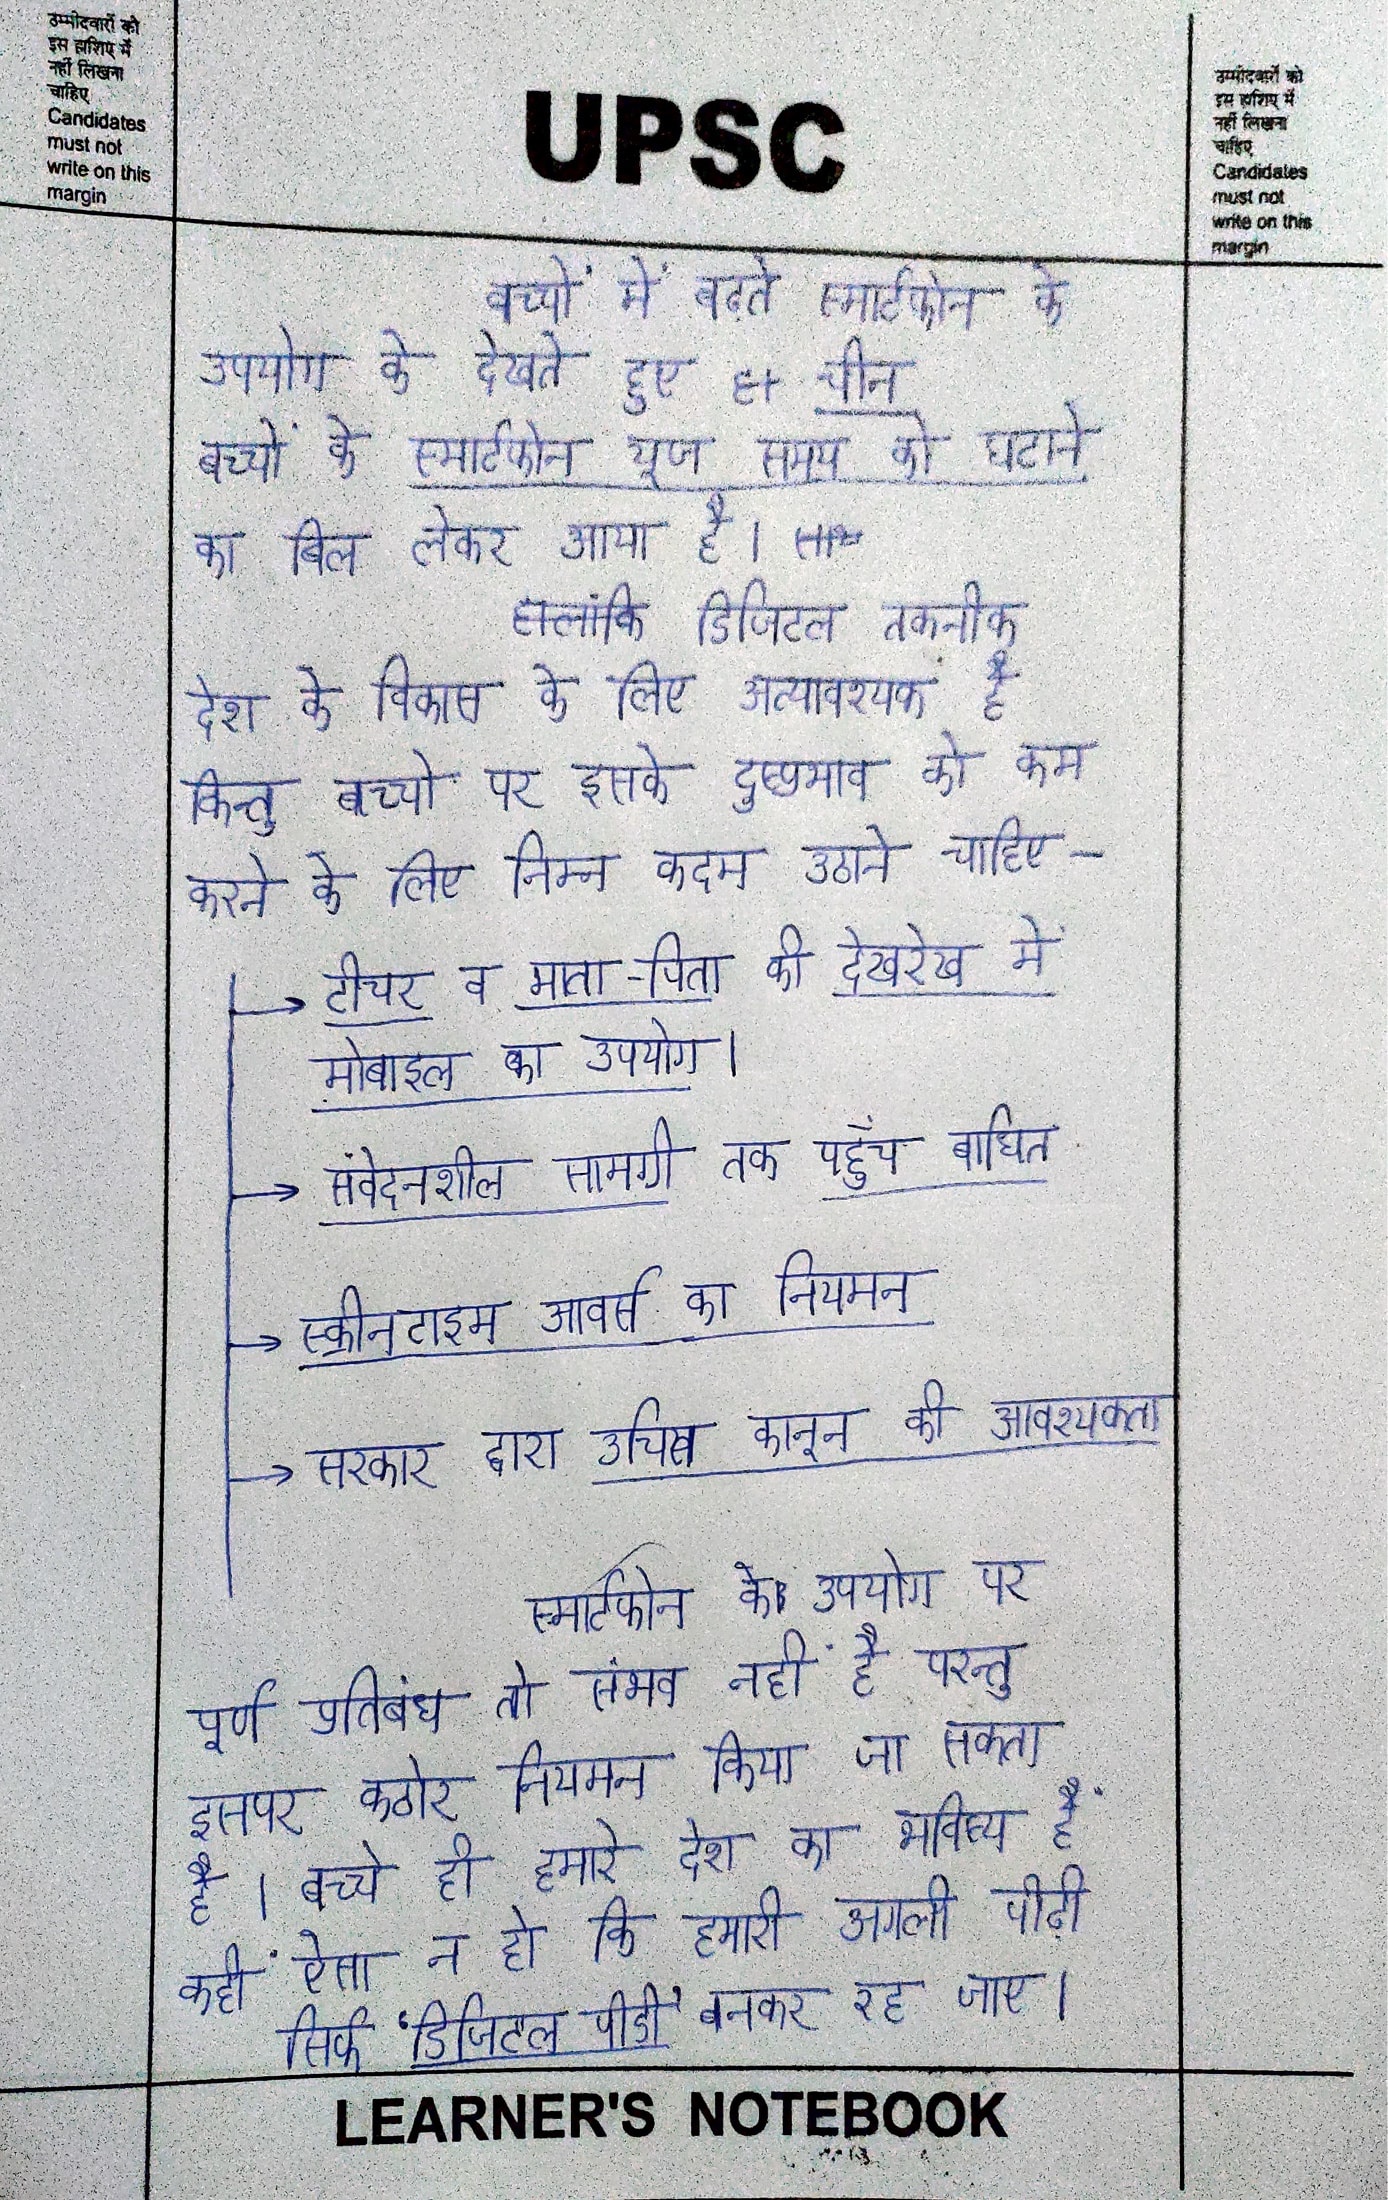 उम्मीदवारों को
इस हाशिए में
नहीं लिखना
चाहिए
Candidates
must not
write on this
margin
UPSC
उम्मीदवारों को
इस हाशिए में
नहीं लिखना
चाहिए
Candidates
must not
write on this
margin
बच्चों में बढ़ते स्मार्टफोन के
उपयोग के देखते हुए चीन
बच्चों के स्मार्टफोन यूज समय को घटाने
का बिल लेकर आया है।
हालांकि डिजिटल तकनीक
देश के विकास के लिए अत्यावश्यक है
किन्तु बच्चो पर इसके दुष्प्रभाव को कम
करने के लिए निम्न कदम उठाने चाहिए -
→ टीचर व माता-पिता की देखरेख में
मोबाइल का उपयोग।
→ संवेदनशील सामग्री तक पहुँच बाधित
→ स्क्रीनटाइम आवर्स का नियमन
→ सरकार द्वारा उचित कानून की आवश्यकता
स्मार्टफोन के उपयोग पर
पूर्ण प्रतिबंध तो संभव नहीं है परन्तु
इसपर कठोर नियमन किया जा सकता
है। बच्चे ही हमारे देश का भविष्य हैं
कहीं ऐसा न हो कि हमारी अगली पीढ़ी
सिर्फ 'डिजिटल पीढ़ी' बनकर रह जाए।
LEARNER'S NOTEBOOK